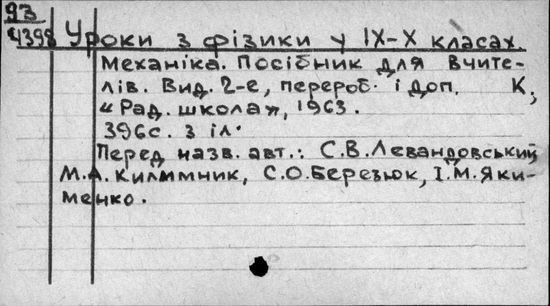 93
4398 Уроки з фізики у IX-X класах.
Механіка. Посібник для вчите-
лів. Вид. 2-е, перероб. і доп. К,
«Рад. школа», 1963.
396с. з іл.
Перед назв. авт.: С.В.Левандовський,
М.А.Килимник, С.О.Березюк, І.М.Яки-
менко.